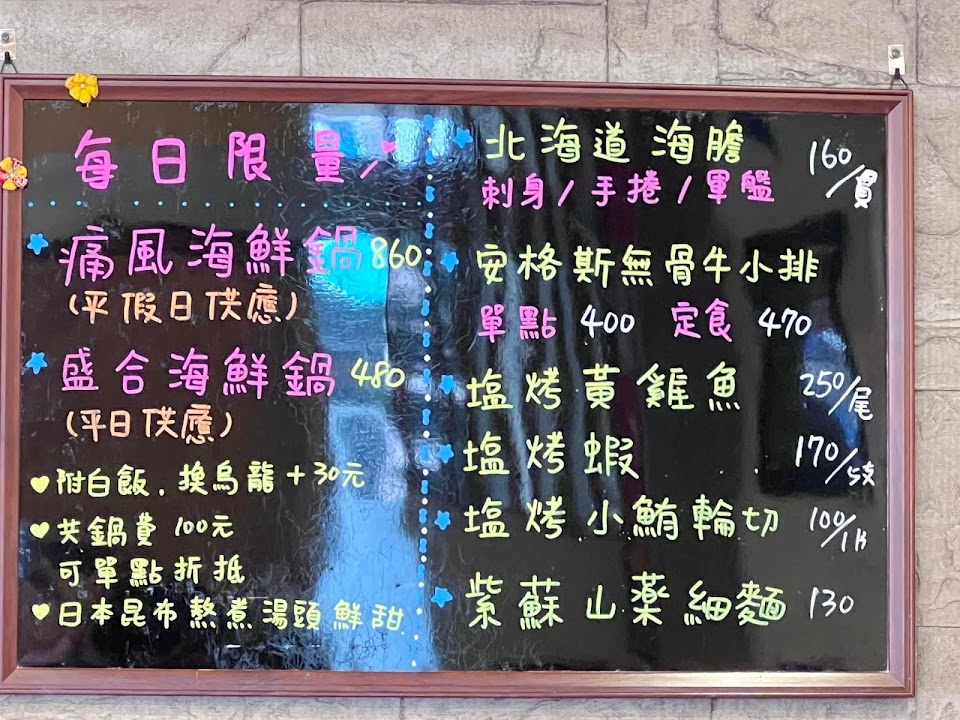 每日限量
痛風海鮮鍋 860
(平假日供應)
盛合海鮮鍋 480
(平日供應)
附白飯.換烏龍+30元
共鍋費 100元
可單點折抵
日本昆布熬煮湯頭鮮甜
北海道海膽 160/貫
刺身/手捲/軍艦
安格斯無骨牛小排
單點 400 定食 470
塩烤黃雞魚 250/尾
塩烤蝦 170/5支
塩烤小鮪輪切 100/1片
紫蘇山薬細麵 130